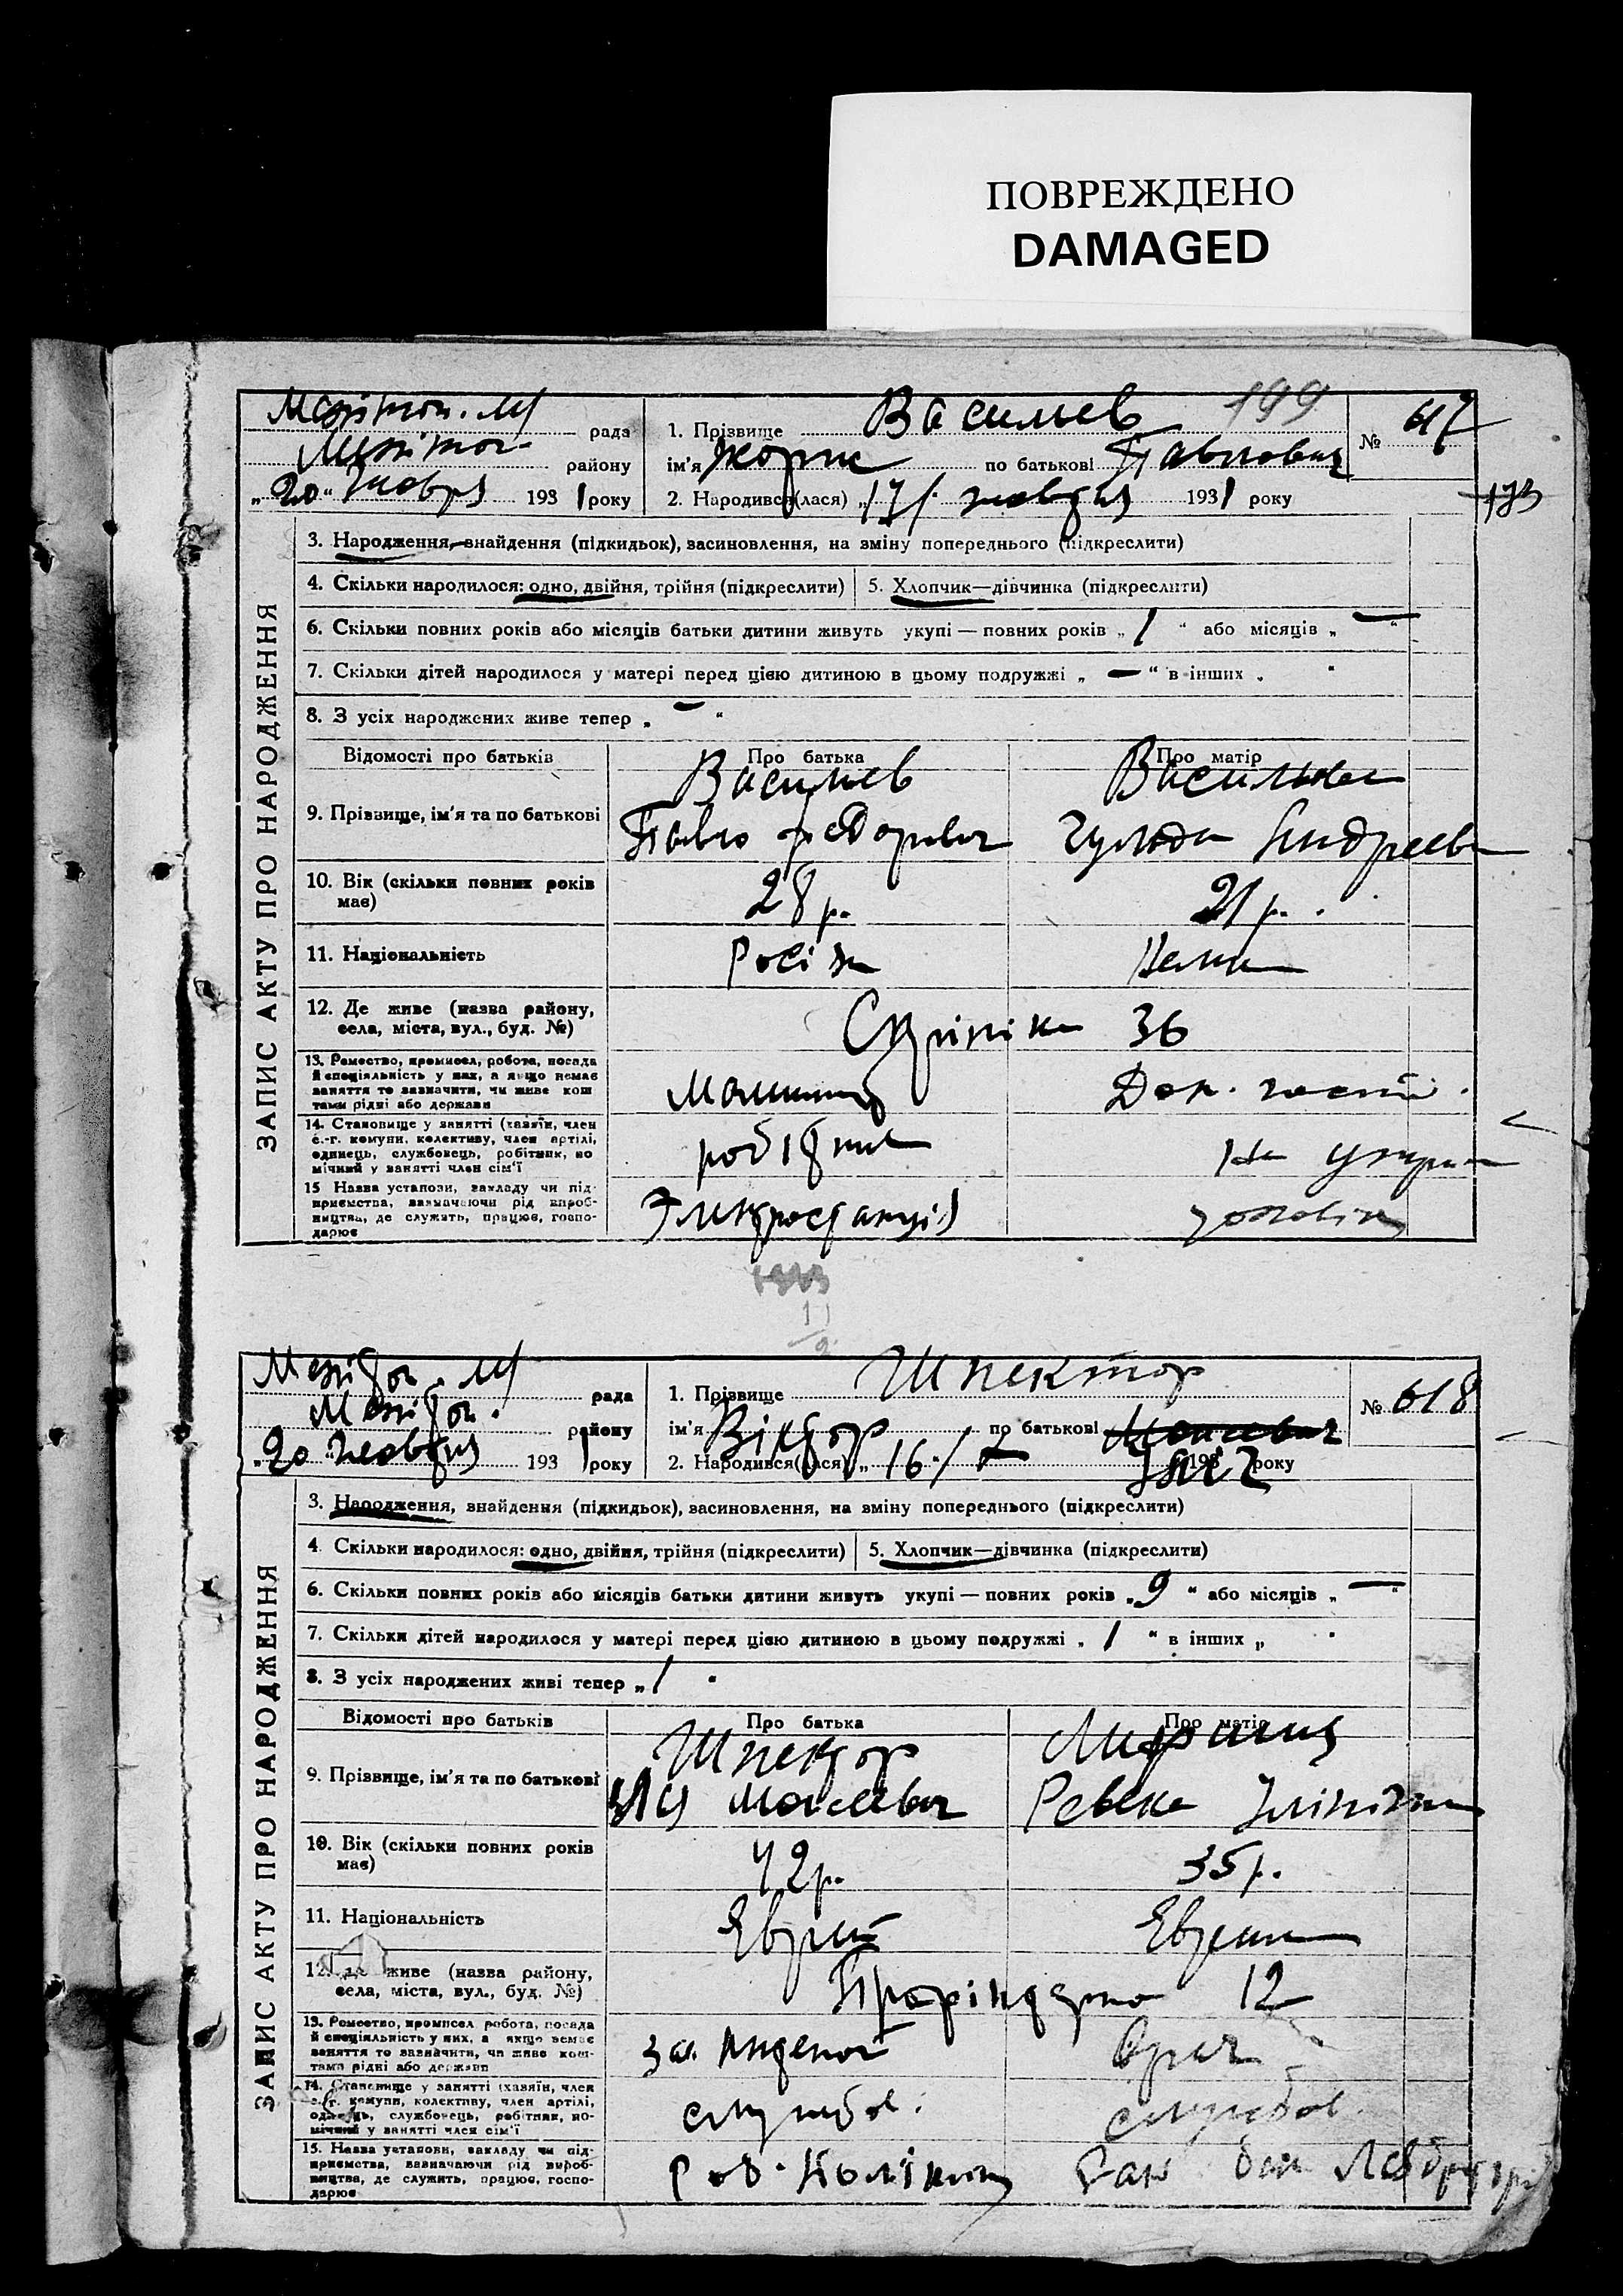 ПОВРЕЖДЕНО
DAMAGED
рада
району
„20“ жовтня 1931 року
1. Прізвище Васильев 199
ім'я Жорж по батькові Павлович
2. Народився(лася) „17/ жовтня 1931 року
№ 617
173
ЗАПИС АКТУ ПРО НАРОДЖЕННЯ
3. Народження, внайдення (підкидьок), васиновлення, на зміну попереднього (підкреслити)
4. Скільки народилося: одно, двійня, трійня (підкреслити) 5. Хлопчик—дівчинка (підкреслити)
6. Скільки повних років або місяців батьки дитини живуть укупі — повних років „ 1 “ або місяців „ — “
7. Скільки дітей народилося у матері перед цією дитиною в цьому подружжі „ — “ в інших „
8. З усіх народжених живе тепер „ — “
Відомості про батьків Про батька Про матір
9. Прізвище, ім'я та по батькові Васильев Васильева
Павло Федорович Андреевна
10. Вік (скільки повних років 28 р. 21 р.
має)
11. Національність Росіян Немка
12. Де живе (назва району, 36
села, міста, вул., буд. №)
13. Ремество, промисел, робота, посада Машиніст Дом. госп.
й спеціяльність у них, а якщо немає
заняття то зазначити, чи живе кош
тами рідні або держави
14. Становище у занятті (хазяїн, член робітник На утрим
с.-г. комуни, колективу, член артілі,
одинець, службовець, робітник, по
мічний у занятті член сім'ї
15 Назва установи, закладу чи під- Электростанція чоловіка
приємства, зазначаючи рід вироб-
ництва, де служить, працює, госпо-
дарює
рада
району
„20 жовтня 1931 року
1. Прізвище Шпектор
ім'я Віктор по батькові Моисевич
2. Народився(лася) „ 16/ 193 року
№ 618
ЗАПИС АКТУ ПРО НАРОДЖЕННЯ
3. Народження, внайдення (підкидьок), васиновлення, на зміну попереднього (підкреслити)
4. Скільки народилося: одно, двійня, трійня (підкреслити) 5. Хлопчик—дівчинка (підкреслити)
6. Скільки повних років або місяців батьки дитини живуть укупі — повних років „ 9 “ або місяців „ — “
7. Скільки дітей народилося у матері перед цією дитиною в цьому подружжі „ 1 “ в інших „
8. З усіх народжених живі тепер „ 1
Відомості про батьків Про батька Про матір
9. Прізвище, ім'я та по батькові Шпектор
Моисеевич Ревека
10. Вік (скільки повних років 42 р. 35 р.
має)
11. Національність Еврей Еврейка
12. Де живе (назва району, Профінтерна 12
села, міста, вул., буд. №)
13. Ремество, промисел, робота, посада Врач
й спеціяльність у них, а якщо немає
заняття то зазначити, чи живе кош-
тами рідні або держави
14. Становище у занятті (хазяїн, член службов. службов.
с.-г. комуни, колективу, член артілі,
одинець, службовець, робітник, по-
мічний у занятті член сім'ї
15. Назва установи, закладу чи під- Роб.
приємства, зазначаючи рід вироб-
ництва, де служить, працює, госпо-
дарює